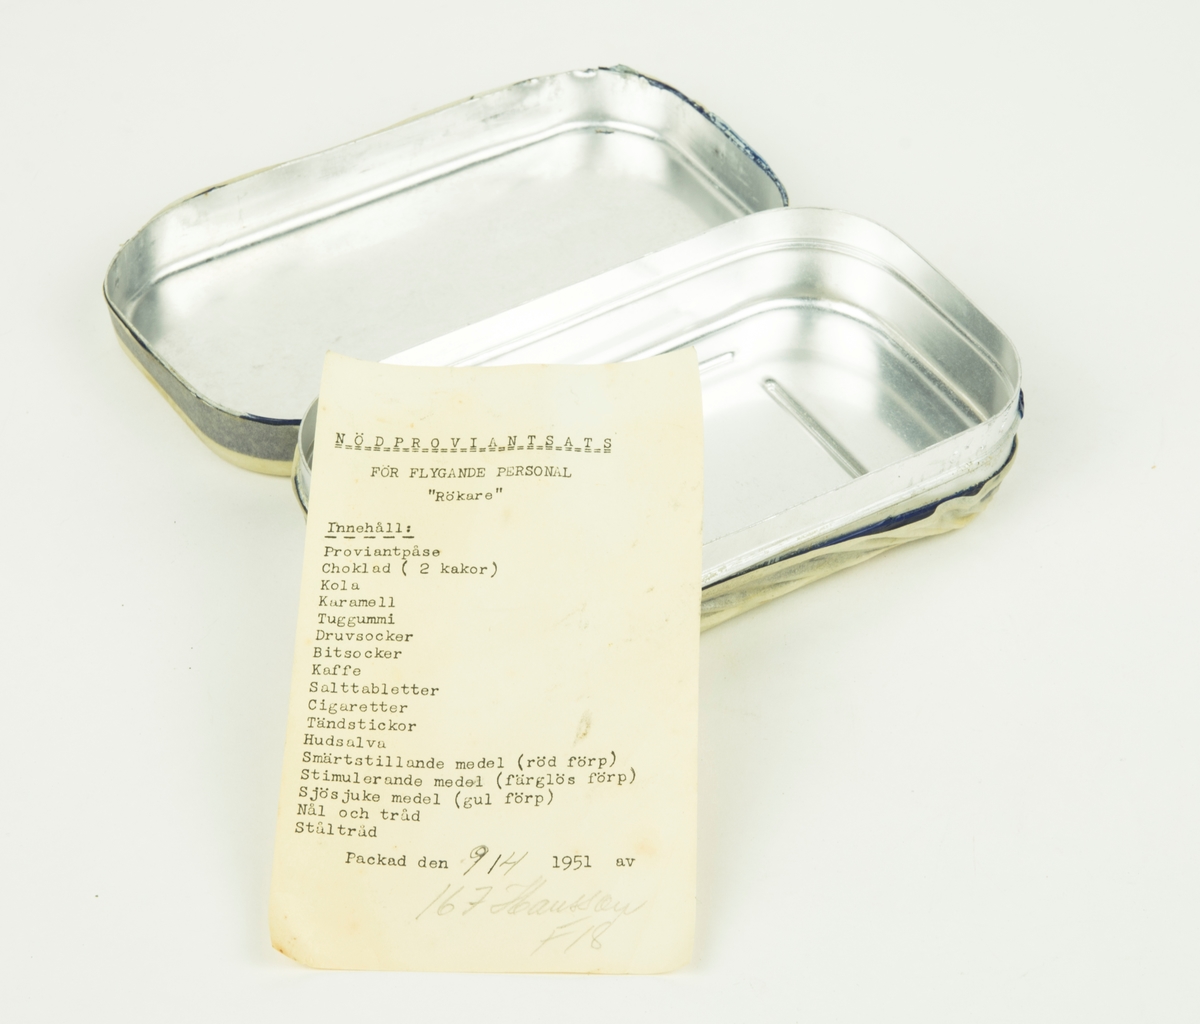 NÖDPROVIANTSATS
FÖR FLYGANDE PERSONAL
"Rökare"
Innehåll:
Proviantpåse
Choklad ( 2 kakor)
Kola
Karamell
Tuggummi
Druvsocker
Bitsocker
Kaffe
Salttabletter
Cigaretter
Tändstickor
Hudsalva
Smärtstillande medel (röd förp)
Stimulerande medel (färglös förp)
Sjösjuke medel (gul förp)
Nål och tråd
Ståltråd
Packad den 9/4 1951 av
167 Hansson
F18